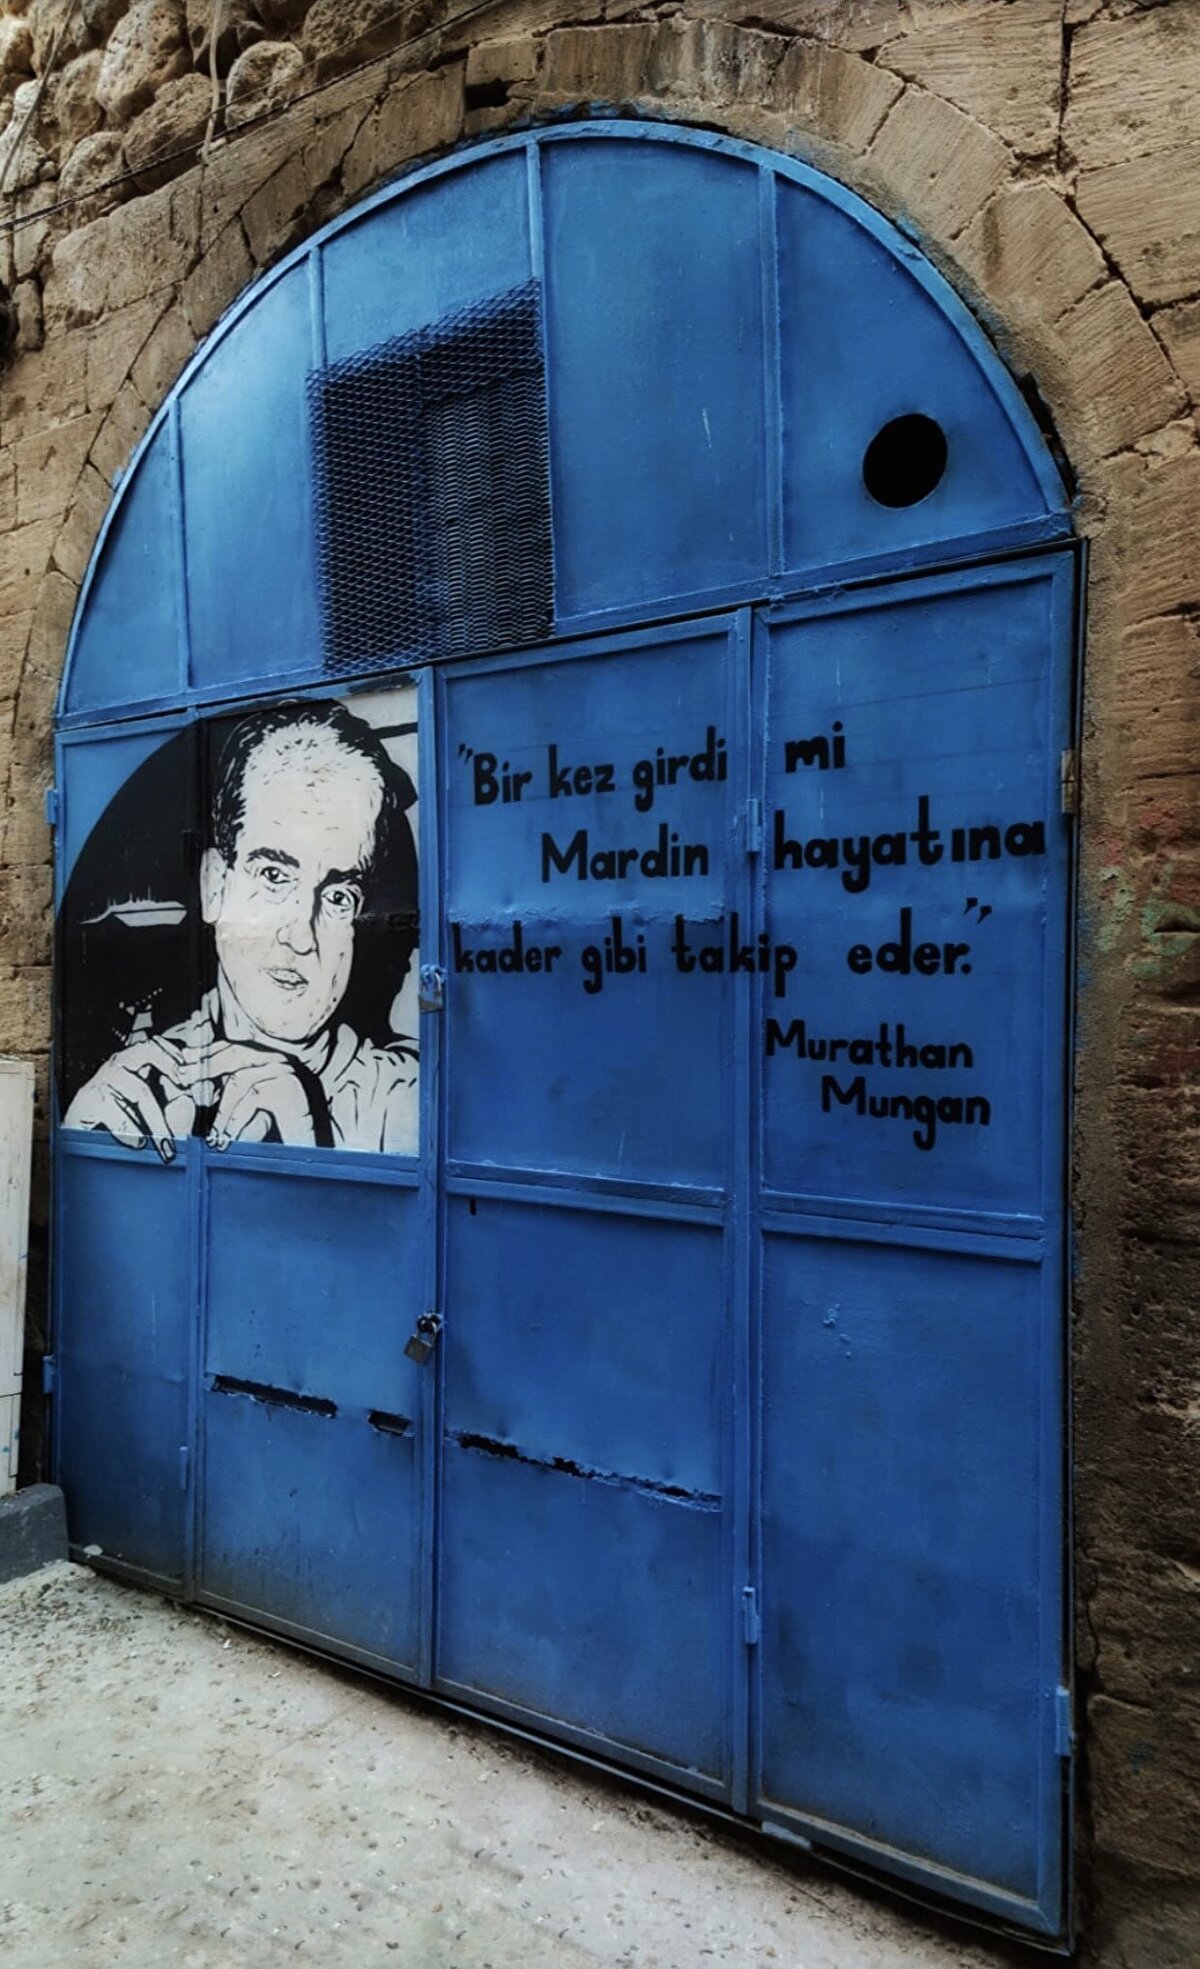 "Bir kez girdi mi
Mardin hayatına
kader gibi takip eder."
Murathan
Mungan